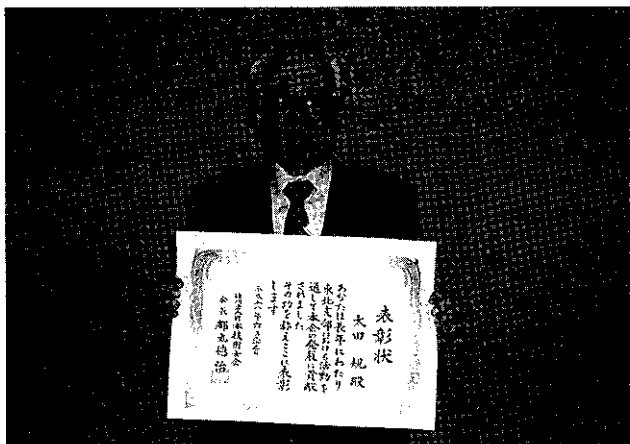 表彰状
太田 規殿
あなたは長年にわたり
東北支部における活動を
通して本会の発展に貢献
されました
その功を称えここに表彰
します
平成六年六月
日本技術士会
会長 都丸徳治